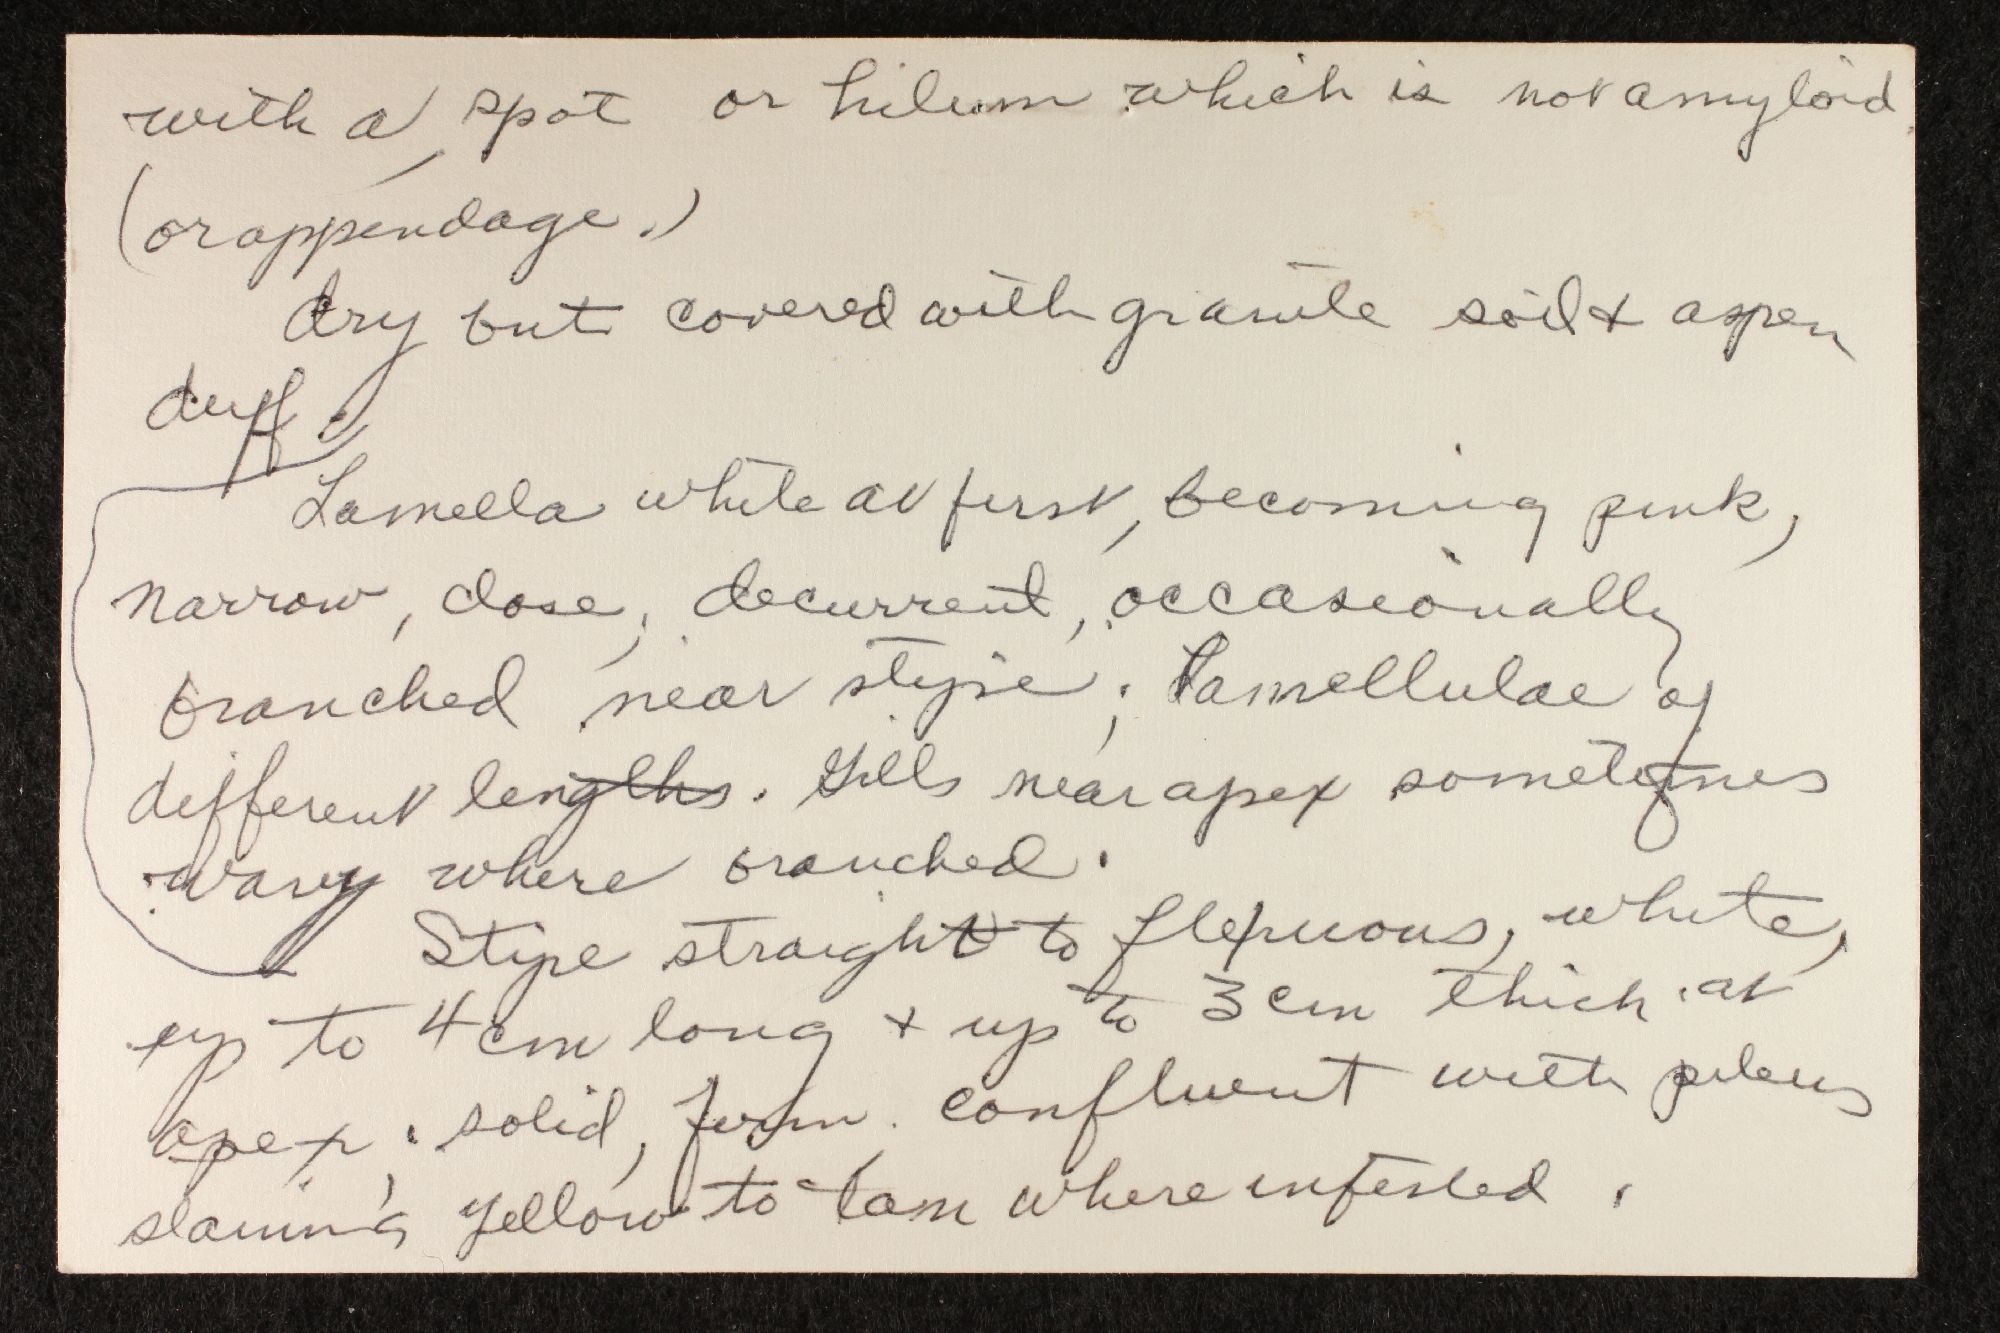 with a spot or hilum which is not amyloid.
(or appendage.)
dry but covered with granite soil & aspen
duff.
Lamella white at first, becoming pink,
narrow, close, decurrent, occasionally
branched near stipe; lamellulae of
different lengths. Gills near apex sometimes
wavy where branched.
Stipe straight to flexuous, white,
up to 4 cm long + up to 3 cm thick at
apex; solid, firm, confluent with pileus
staining yellow to tan where infested.